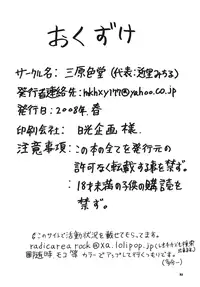 おくづけ
サークル名： 三原色堂（代表：  みちる）
発行者連絡先：mkhxy177@yahoo.co.jp
発行日：2008年 春
印刷会社： 日光企画 様.
注意事項：この本の全てを発行元の
許可なく転載する事を禁ず。
：18才未満の子供の購読を
禁ず。
このサイトで活動状況を載せてもらってます。
radicarea rock@xa.lolipop.jp